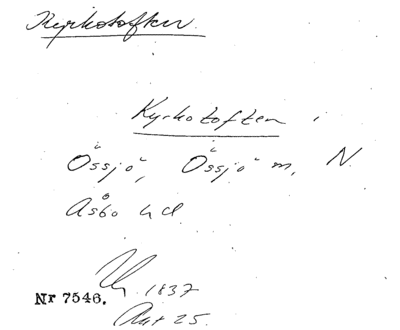 Kyrkotoften.
Kyrkotoften i
Össjö, Össjö m, N.
Åsbo hd
1837
Nr 7546.
Akt 25.